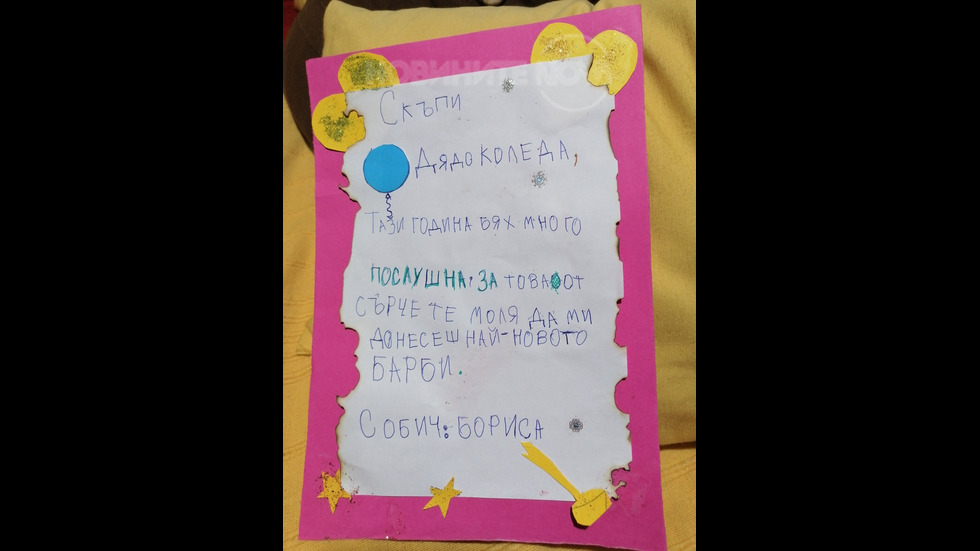 НОВИНИТЕ NOVA
Скъпи
Дядо КОЛЕДА,
ТАЗИ ГОДИНА БЯХ МНОГО
ПОСЛУШНА. ЗА ТОВА ОТ
СЪРЧЕ ТЕ МОЛЯ ДА МИ
ДОНЕСЕШ НАЙ-НОВОТО
БАРБИ.
С ОБИЧ: БОРИСА